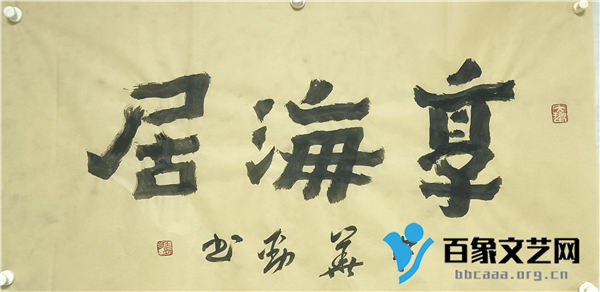 享海居
華
书
百象文艺网
bbcaaa.org.cn